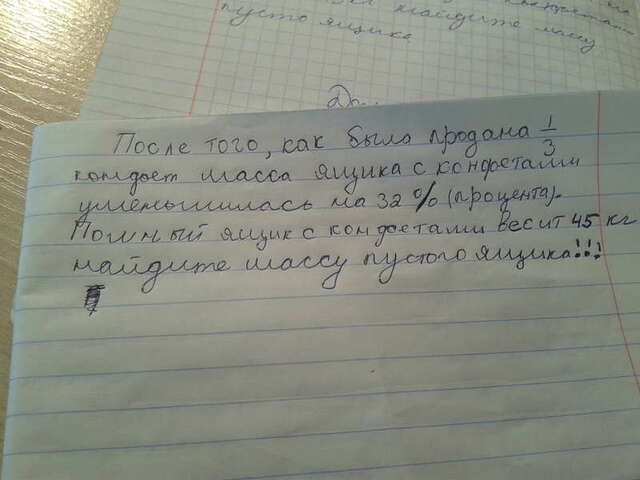 найдите массу
пусто ящика
До
После того, как была продана 1/3
конфет масса ящика с конфетами
уменьшилась на 32 % (процента).
Полный ящик с конфетами весит 45 кг
найдите массу пустого ящика!!!